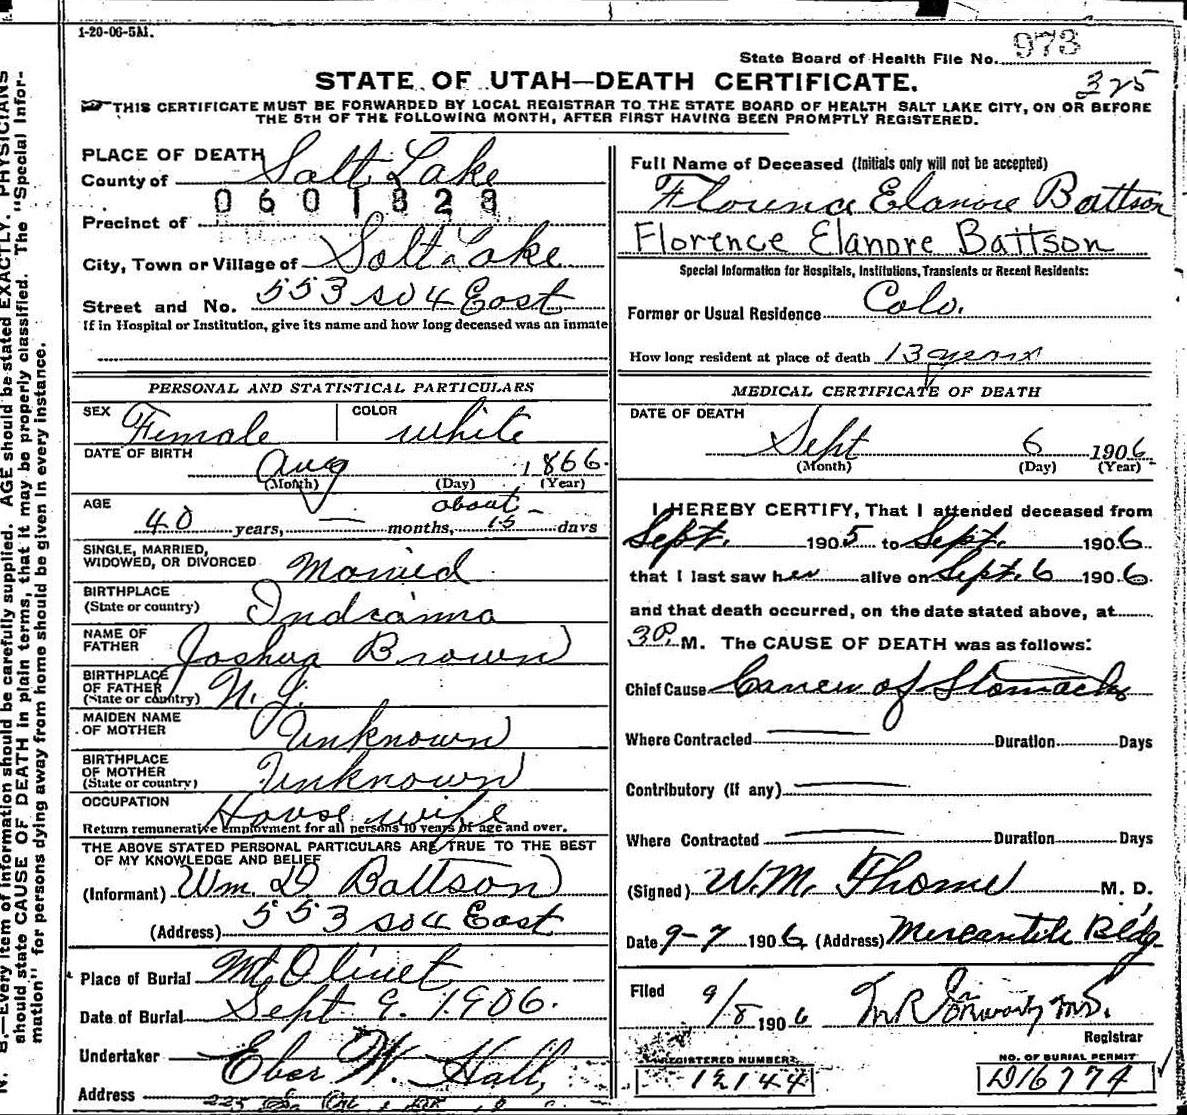 1-20-06-5M.
State Board of Health File No. 973
STATE OF UTAH—DEATH CERTIFICATE.
325
THIS CERTIFICATE MUST BE FORWARDED BY LOCAL REGISTRAR TO THE STATE BOARD OF HEALTH SALT LAKE CITY, ON OR BEFORE
THE 5TH OF THE FOLLOWING MONTH, AFTER FIRST HAVING BEEN PROMPTLY REGISTERED.
PLACE OF DEATH
County of Salt Lake
0601828
Precinct of
City, Town or Village of Salt Lake
Street and No. 553 So 4 East
If in Hospital or Institution, give its name and how long deceased was an inmate
PERSONAL AND STATISTICAL PARTICULARS
SEX Female COLOR white
DATE OF BIRTH Aug 1866
(Month) (Day) (Year)
AGE 40 years, — months, about 15 days
SINGLE, MARRIED,
WIDOWED, OR DIVORCED Married
BIRTHPLACE
(State or country) Indianna
NAME OF
FATHER Joshua Brown
BIRTHPLACE
OF FATHER
(State or country) N. J.
MAIDEN NAME
OF MOTHER Unknown
BIRTHPLACE
OF MOTHER
(State or country) Unknown
OCCUPATION House wife
Return remunerative employment for all persons 10 years of age and over.
THE ABOVE STATED PERSONAL PARTICULARS ARE TRUE TO THE BEST
OF MY KNOWLEDGE AND BELIEF
(Informant) Wm. D Battson
(Address) 553 So 4 East
Place of Burial Mt Olivet
Date of Burial Sept 9. 1906.
Undertaker Eber W. Hall,
Address 225 So
Full Name of Deceased (Initials only will not be accepted)
Florence Elanore Battson
Florence Elanore Battson
Special Information for Hospitals, Institutions, Transients or Recent Residents:
Former or Usual Residence Colo.
How long resident at place of death 13 years
MEDICAL CERTIFICATE OF DEATH
DATE OF DEATH
Sept 6 1906
(Month) (Day) (Year)
I HEREBY CERTIFY, That I attended deceased from
Sept. 1905 to Sept. 1906
that I last saw her alive on Sept. 6 1906
and that death occurred, on the date stated above, at
3 P. M. The CAUSE OF DEATH was as follows:
Chief Cause Cancer of Stomach
Where Contracted — Duration Days
Contributory (If any) —
Where Contracted — Duration Days
(Signed) W. M. Thome M. D.
Date 9-7 1906 (Address) Mercantile Bldg
Filed 9/8 1906 M R
M.D.
Registrar
REGISTERED NUMBER
12144
NO. OF BURIAL PERMIT
D16774
N. B.—Every item of information should be carefully supplied. AGE should be stated EXACTLY. PHYSICIANS
should state CAUSE OF DEATH in plain terms, that it may be properly classified. The "Special Infor-
mation" for persons dying away from home should be given in every instance.